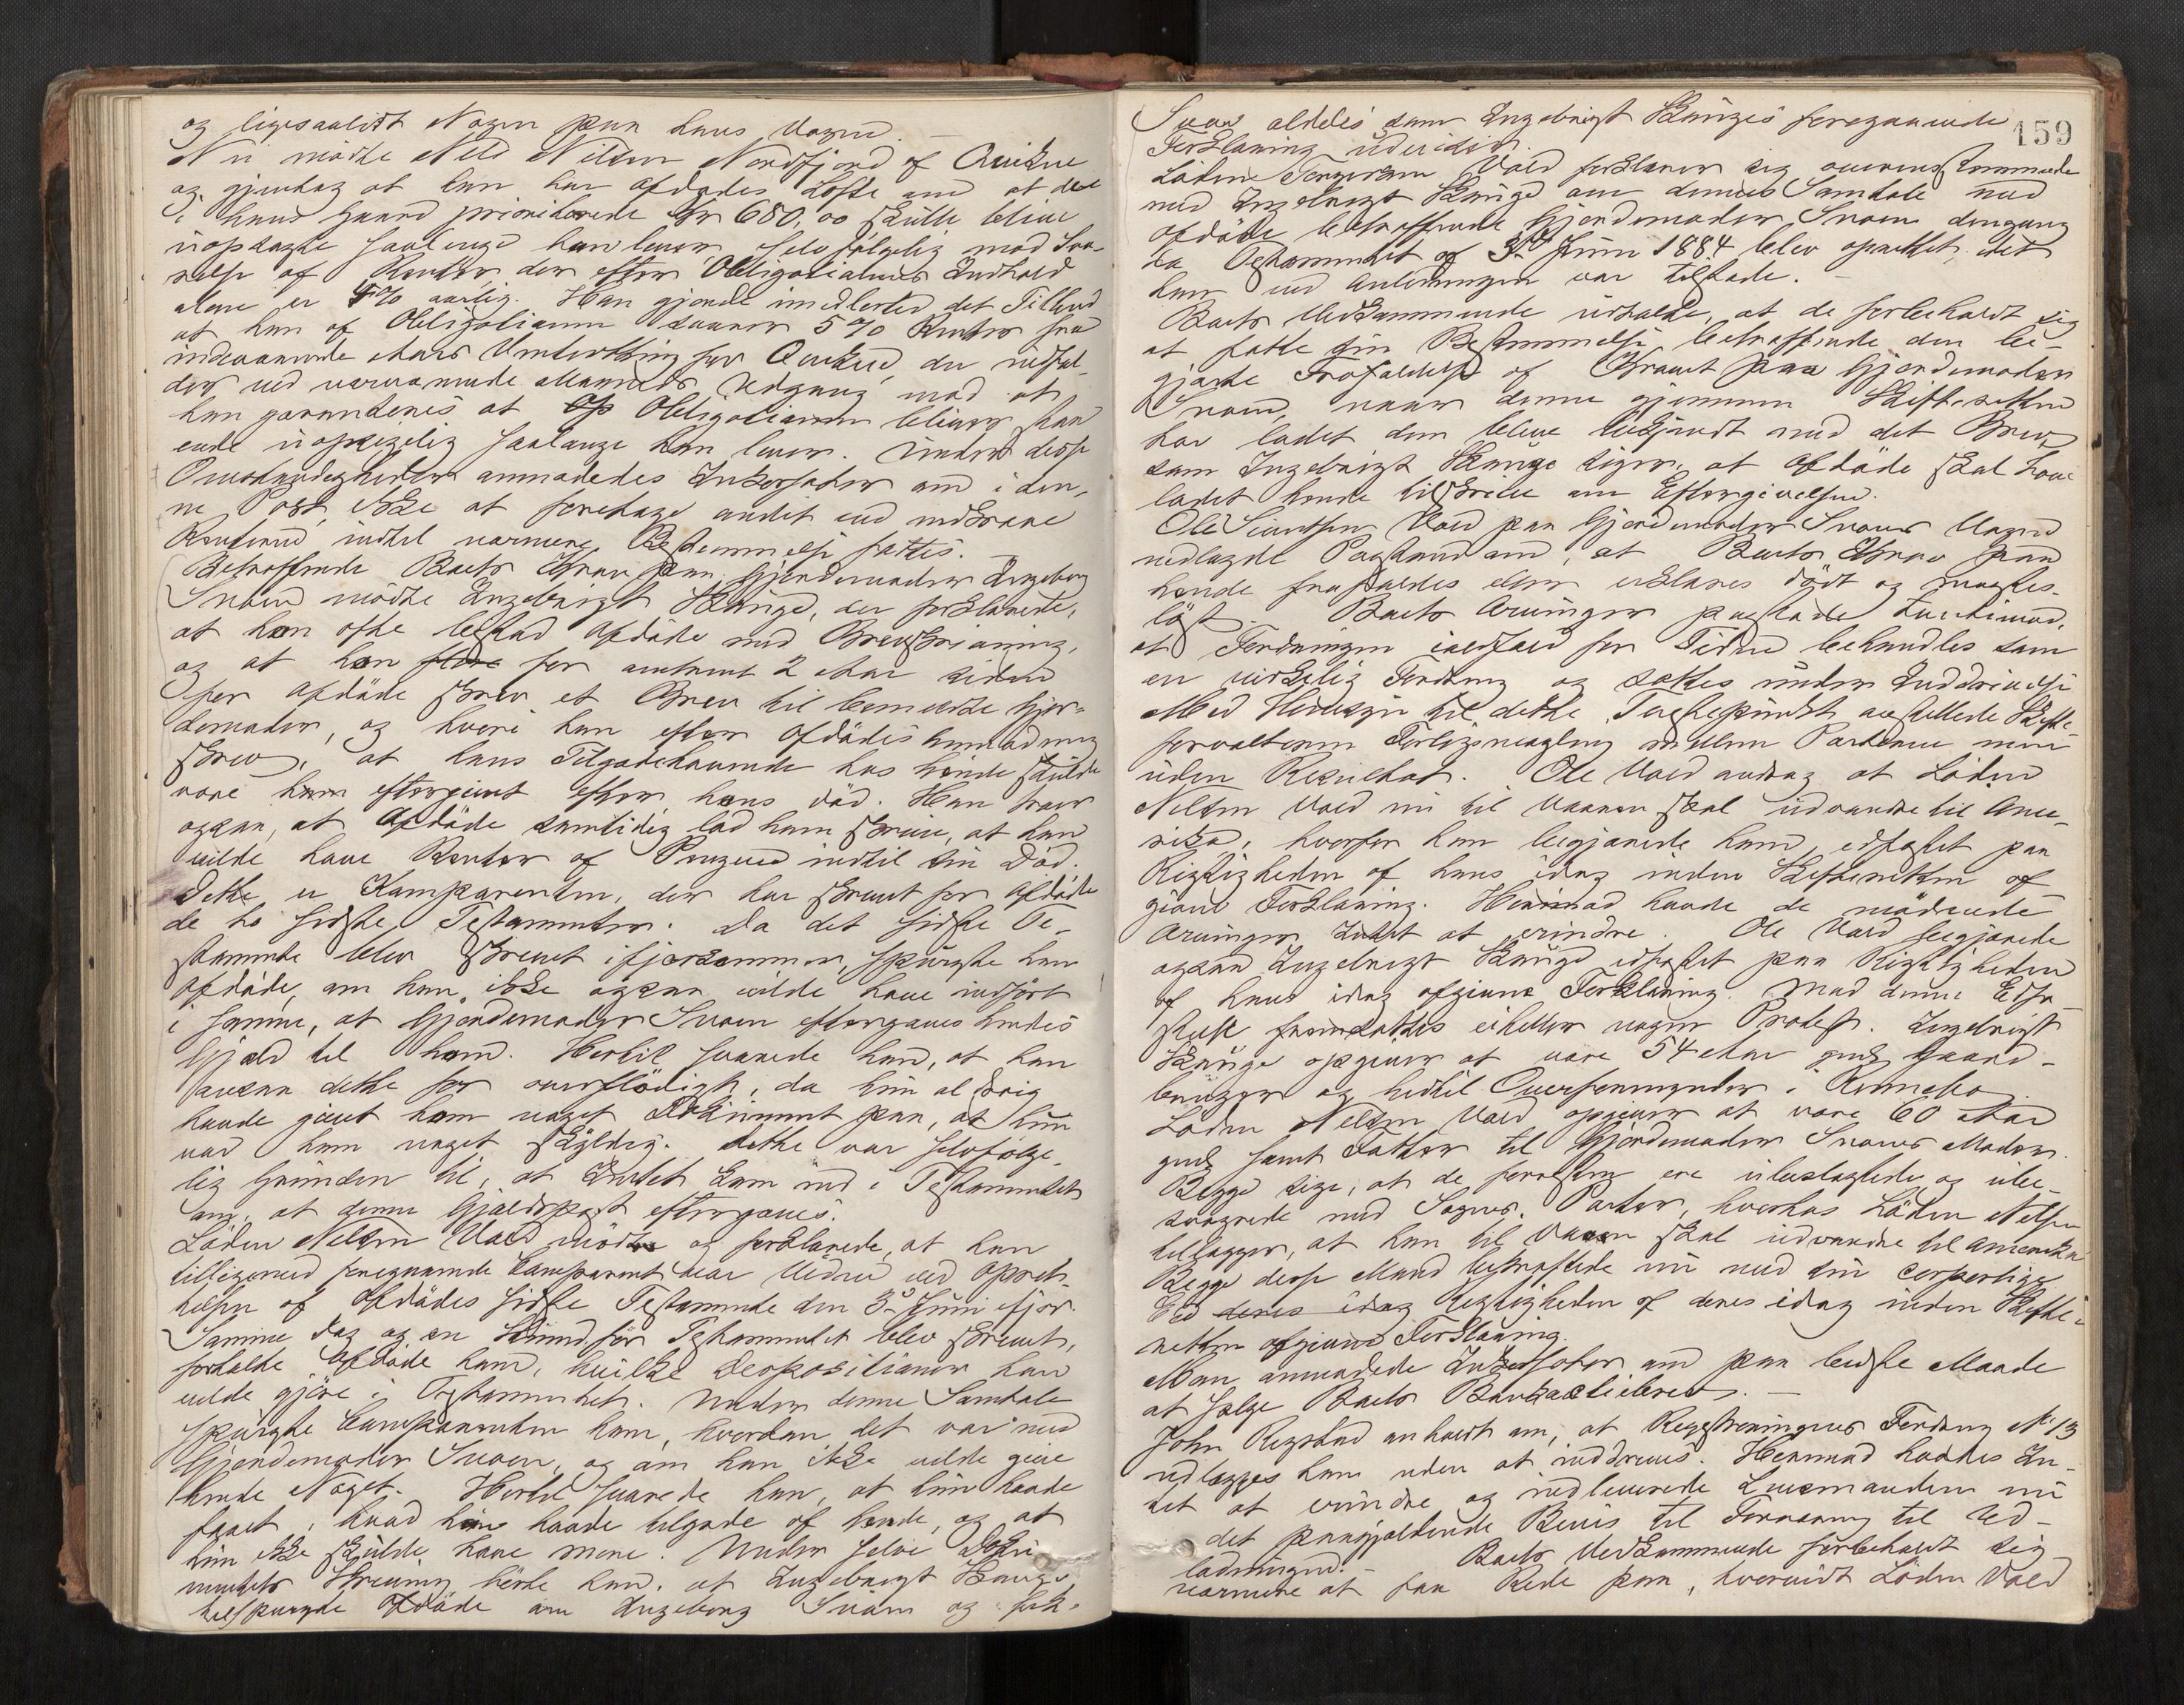 og ligesaalidt Nogen paa hans Vegne. —
Nu mødte Nils Nilsen Nordfjord af Qvikne
og gjentog at han har Afdødes Løfte om at de
i hans Gaard prioriterede Kr 680,00 skulle blive
uopsagte saalænge han lever, selvfølgelig mod Sva-
relse af Renter, der efter Obligationens Indhold
alene er 4% aarlig. Han gjorde imidlertid det Tilbud
at han af Obligationen svarer 5% Renter fra
indeværende Aars Vinterthing for Qvikne, der indfal-
der ved nærværende Maaneds Udgang mod at
han garanteres at Obligationen bliver staa-
ende uopsigelig saalænge han lever. Under disse
Omstændigheder anmodedes Inkassator om i den-
ne Post ikke at foretage andet end indkræve
Renterne indtil nærmere Bestemmelse fattes. —
Betræffende Boets Krav paa Gjordemoder Ingeborg
Svoen mødte Ingebrigt Hauge, der forklarede,
at han ofte bistod Afdøde med Brevskrivning,
og at han for omtrent 2 Aar siden
for Afdøde skrev et Brev til bemeldte Gjor-
demoder, og hvori han efter Afdødes Anmodning
skrev, at hans Tilgodehavende hos hende skulde
være eftergivet efter hans Død. Han tror
ogsaa, at Afdøde samtidig lod ham skrive, at han
vilde have Renter af Pengene indtil sin Død.
Dette er Komparenten, der har skrevet for Afdøde
de to sidste Testamenter. Da det sidste Te-
stamente blev skrevet ifjorsommer, spurgte han
Afdøde, om han ikke ogsaa vilde have indført
i samme, at Gjordemoder Svoen eftergaves hendes
Gjæld til ham. Hertil svarede han, at han
ansaa dette for overflødigt, da hun aldrig
havde givet ham noget Dokument paa, at hun
var ham noget skyldig. Dette var selvfølge-
lig Grunden til, at Intet kom ind i Testamentet
om, at denne Gjældspost eftergaves.
Loden Nilsen Vold mødte og forklarede, at han
tilligemed foregaaende Comparent var Vidne ved Opret-
telsen af Afdødes sidste Testamente den 3die Juni ifjor.
Samme Dag og en Stund før Testamentet blev skrevet,
fortalte Afdøde ham, hvilke Depositioner han
vilde gjøre i Testamentet. Under denne Samtale
spurgte Comparenten ham, hvordan det var med
Gjordemoder Svoen, og om han ikke vilde give
hende Noget. Hertil svarede han, at hun havde
faaet, hvad han havde tilgode af hende, og at
hun ikke skulde have mere. Under selve Doku-
mentets Skrivning hørte han, at Ingebrigt Hauge
tilspurgte Afdøde om Ingeborg Svoen og fik
159
Svar aldeles som Ingebrigt Hauges foregaaende
Forklaring udviser.
Loden Vold forklarer sig overensstemmende
med Ingebrigt Hauge om dennes Samtale med
Afdøde betræffende Gjordemoder Svoen dengang
da Testamentet af 3die Juni 1884 blev oprettet, idet
han ved Anledningen var tilstede. —
Boets Vedkommende udtalte, at de forbeholdt sig
at fatte sin Bestemmelse betræffende den be-
gjærte Frafaldelse af Kravet paa Gjordemoder
Svoen, naar denne gjennem Skifteretten
har ladet dem blive bekjendt med det Brev,
som Ingebrigt Hauge siger, at Afdøde skal have
ladet hende tilskrive om Eftergivelsen.
Ole Sivertsen Vold paa Gjordemoder Svoens Vegne
nedlagde Paastand om, at Boets Krav paa
hende frafaldes eller erklæres dødt og magtes-
løst. Boets Arvinger paastode derimod,
at Fordringen ialfald for Tiden behandles som
en virkelig Fordring og sættes under Inddrivelse
Med Hensyn til dette Tvistepunkt anstillede Skifte-
forvalteren Forligsmægling mellem Parterne men
uden Resultat. Ole Vold androg at Loden
Nilsen Vold nu til Vaaren skal udvandre til Ame-
rika, hvorfor han begjærede ham edfæstet paa
Rigtigheden af hans idag inden Skifteretten af-
givne Forklaring. Herimod havde de mødende
Arvinger Intet at erindre. Ole Vold begjærede
ogsaa Ingebrigt Hauge edfæstet paa Rigtigheden
af hans idag afgivne Forklaring. Mod denne Edfæ-
stelse fremsattes eiheller nogen Protest. Ingebrigt
Hauge opgiver at være 54 Aar gml, Gaard-
bruger og hidtil Overformynder i Rennebo.
Loden Nilsen Vold opgiver at være 60 Aar
gml samt Fætter til Gjordemoder Svoens Moder.
Begge sige, at de forøvrig ere ubeslægtede og ube-
svogrede med Sagens Parter, hvorhos Loden Nilsen
tillægger, at han til Vaaren skal udvandre til Amerika
Begge disse Mænd bekræftede nu med sin corporlige
Ed deres idag Rigtigheden af deres idag inden Skifte-
retten afgivne Forklaring.
Man anmodede Inkassator om paa bedste Maade
at sælge Boets Bankactiebrev. —
John Rugstad anholdt om, at Registreringens Fordring No 13
udlægges ham uden at inddrives. Herimod havdes In-
tet at erindre og indleverede Lensmanden nu
det paagjældende Bevis til Forvaring til Ud-
lodningen. — Boets Vedkommende forbeholdt sig
nærmere at faa Rede paa, hvorvidt Loden Vold